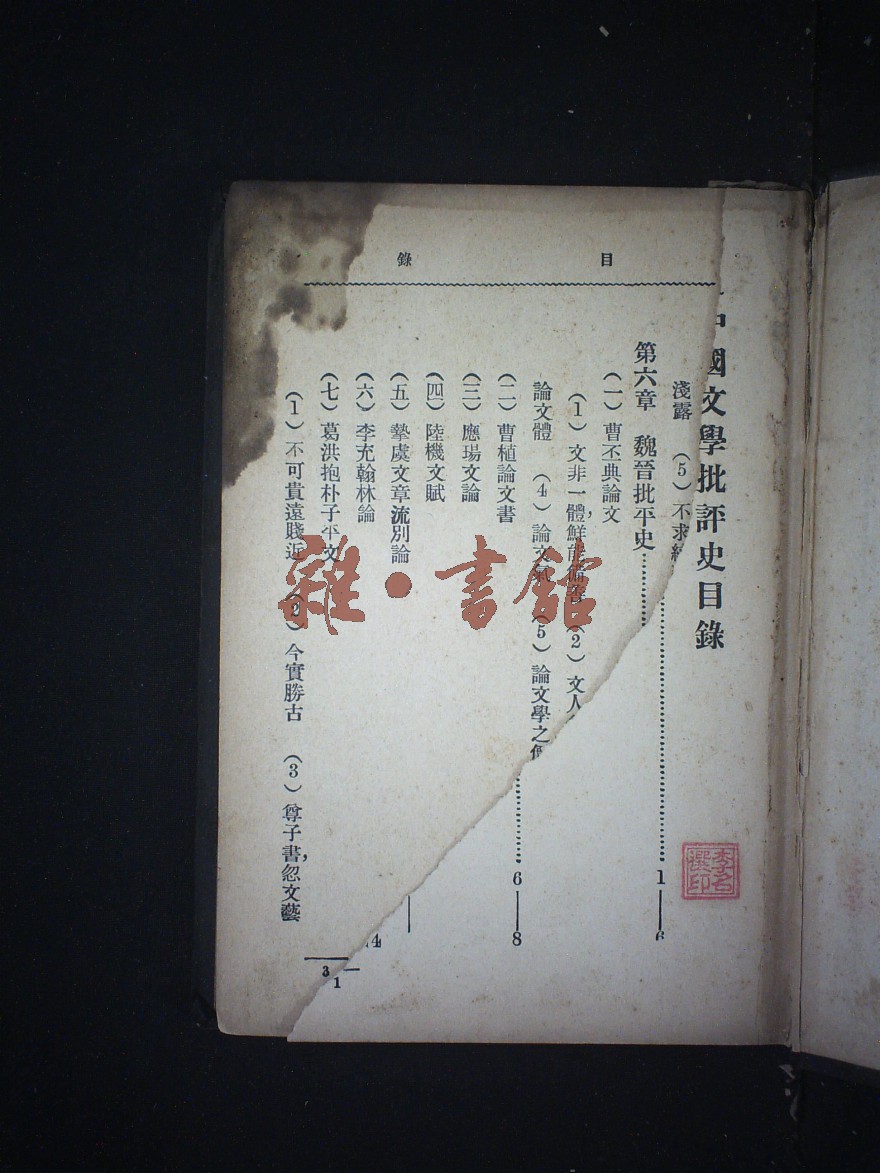 目錄
中國文學批評史目錄
淺露 （5）不求
第六章 魏晉批評史……………1—6
（一）曹丕典論文
（1）文非一體，鮮能備善 （2）文人
論文體 （4）論文氣 （5）論文學之
（二）曹植論文書
……………6—8
（三）應瑒文論
（四）陸機文賦
（五）摯虞文章流別論
（六）李充翰林論
（七）葛洪抱朴子平文
（1）不可貴遠賤近 （2）今實勝古 （3）尊子書，忽文藝
4
3
1
雜·書館